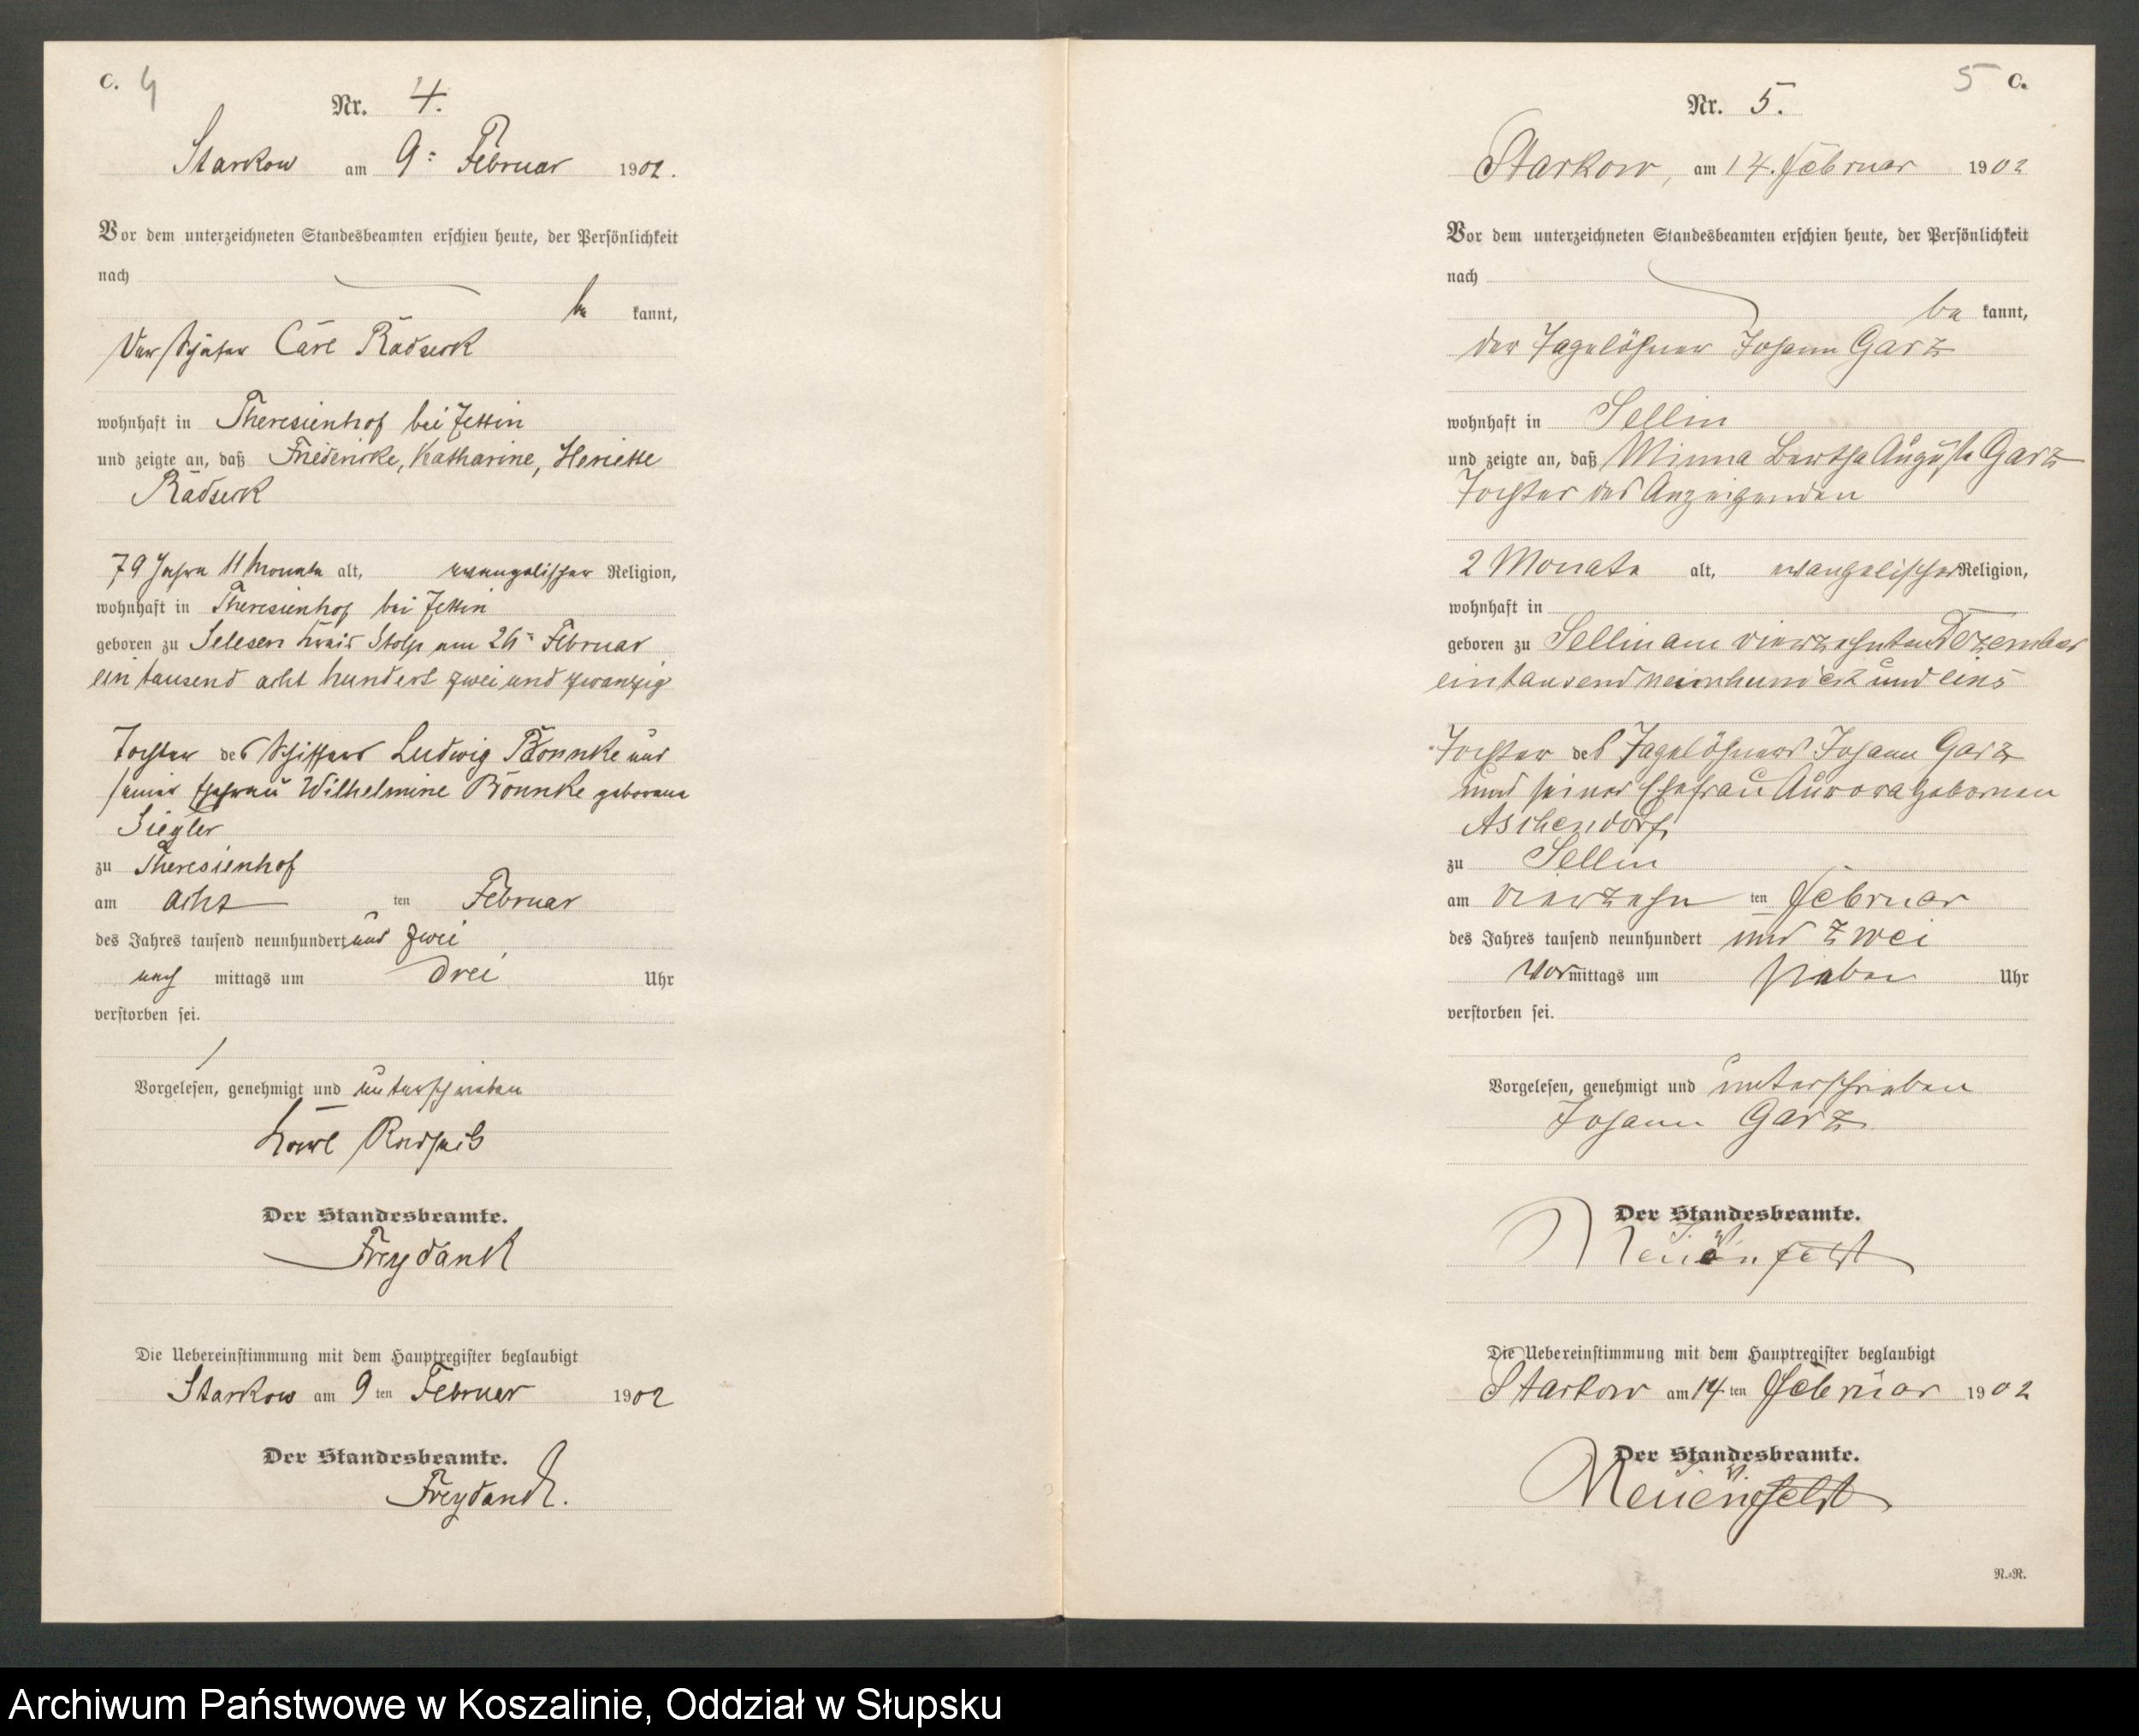 C. 4
Nr. 4.
Starkow am 9ten Februar 1902.
Vor dem unterzeichneten Standesbeamten erschien heute, der Persönlichkeit
nach
be kannt,
Der Schäfer Carl Radseck
wohnhaft in Theresienhof bei Zettin
und zeigte an, daß Friedericke, Katharine, Henriette
Radseck
79 Jahre 11 Monate alt, evangelischer Religion,
wohnhaft in Theresienhof bei Zettin
geboren zu Selesen Kreis Stolp am 26ten Februar
ein tausend acht hundert zwei und zwanzig
Tochter des Schiffers Ludwig Bönnke und
seiner Ehefrau Wilhelmine Bönnke geborene
Siegler
zu Theresienhof
am acht ten Februar
des Jahres tausend neunhundert und zwei
nach mittags um drei Uhr
verstorben sei.
Vorgelesen, genehmigt und unterschrieben
Karl
Der Standesbeamte.
Freydank
Die Uebereinstimmung mit dem Hauptregister beglaubigt
Starkow am 9 ten Februar 1902
Der Standesbeamte.
Freydank.
5 C.
Nr. 5.
Starkow, am 14. Februar 1902
Vor dem unterzeichneten Standesbeamten erschien heute, der Persönlichkeit
nach
be kannt,
der Tagelöhner Johann Garz
wohnhaft in Sellin
und zeigte an, daß Minna Bertha Auguste Garz
Tochter des Anzeigenden
2 Monate alt, evangelischer Religion,
wohnhaft in
geboren zu Sellin am vierzehnten Dezember
eintausend neunhundert und eins
Tochter des Tagelöhners Johann Garz
und seiner Ehefrau Aurora gebornen
Aschendorf,
zu Sellin
am vierzehn ten Februar
des Jahres tausend neunhundert und zwei
Vor mittags um sieben Uhr
verstorben sei.
Vorgelesen, genehmigt und unterschrieben
Johann Garz
Der Standesbeamte.
Die Uebereinstimmung mit dem Hauptregister beglaubigt
Starkow am 14 ten Februar 1902
Der Standesbeamte.
N.-N.
Archiwum Państwowe w Koszalinie, Oddział w Słupsku